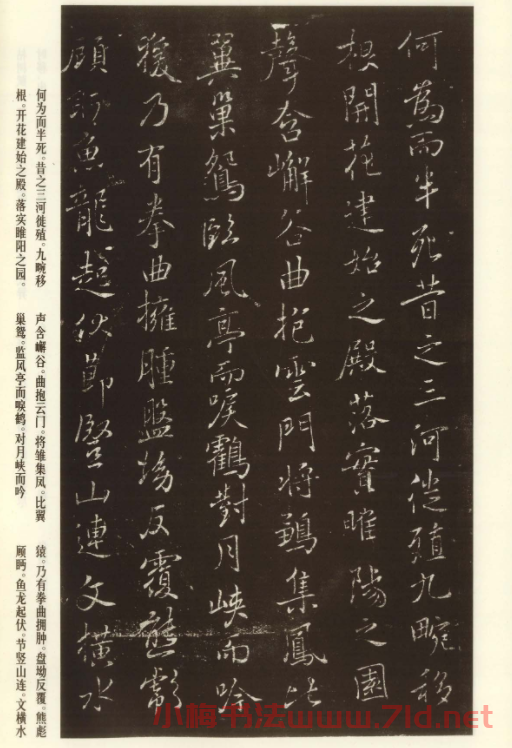 何为而半死。昔之三河徙殖。九畹移
根。开花建始之殿。落实睢阳之园。
声含嶰谷。曲抱云门。将雏集凤。比翼
巢鸳。监风亭而唳鹤。对月峡而吟
猿。乃有拳曲拥肿。盘坳反覆。熊彪
顾眄。鱼龙起伏。节竖山连。文横水
何為而半死昔之三河徙殖九畹移
根開花建始之殿落實睢陽之園
聲含嶰谷曲抱雲門將鶵集鳳比
翼巢鴛臨風亭而唳鶴對月峽而吟
猨乃有拳曲擁腫盤坳反覆熊彪
顧眄魚龍起伏節豎山連文橫水
小梅书法www.7ld.net